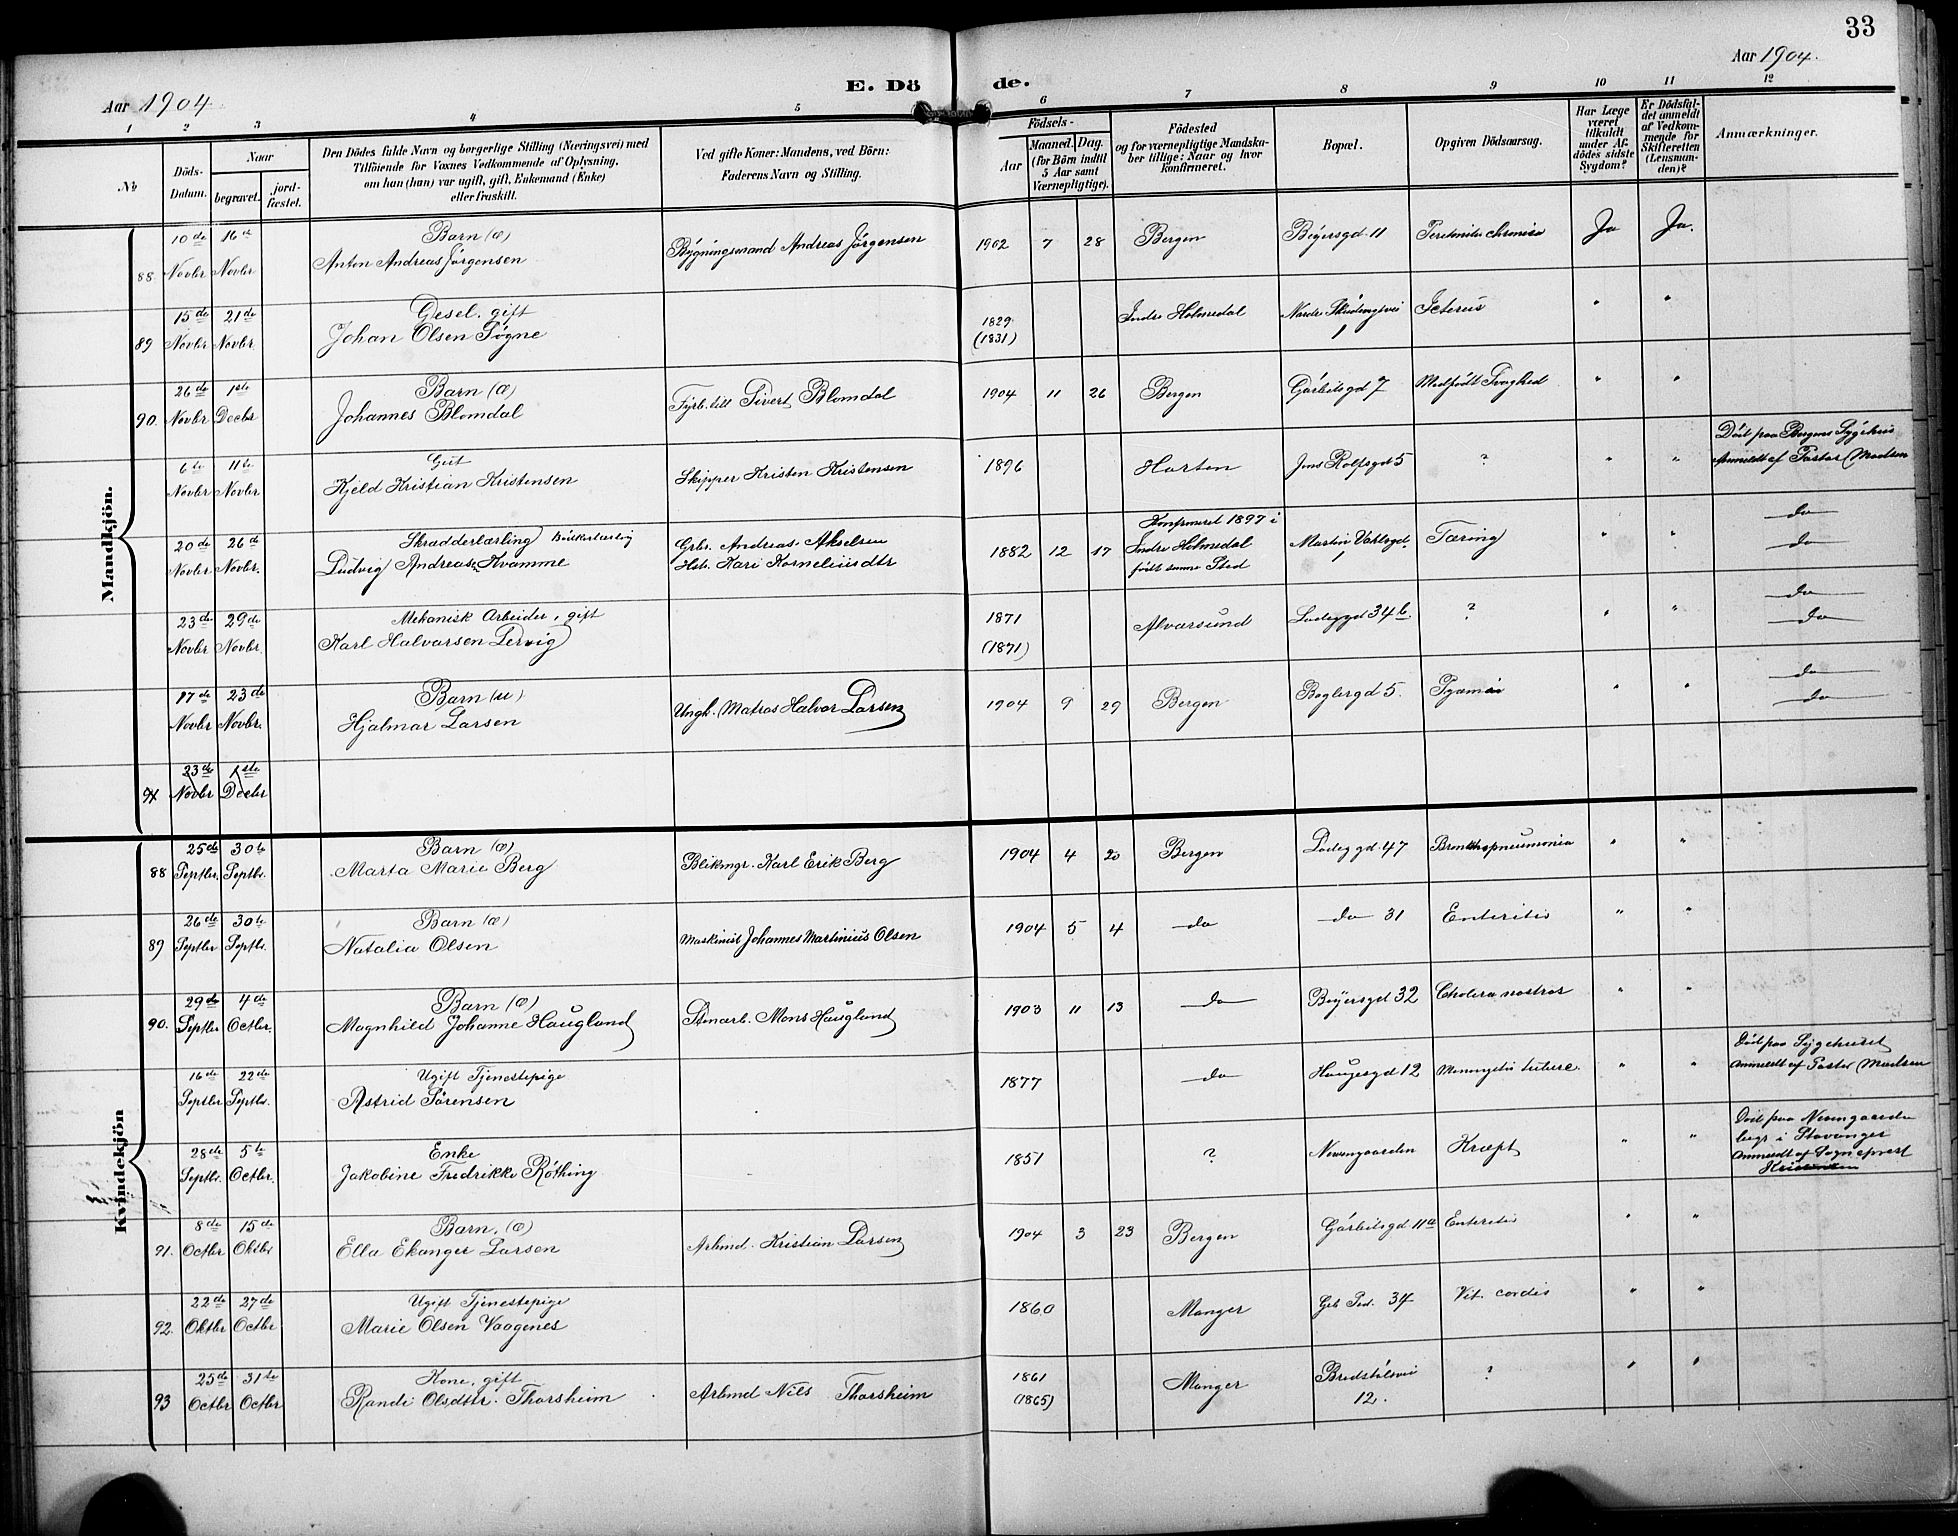 33
Aar 1904.
E. Dö de.
Aar 1904.
1 2 3 4 5 6 7 8 9 10 11 12
No
Döds-Datum.
Naar
begravet.
jord-fæstet.
Den Dödes fulde Navn og borgerlige Stilling (Næringsvei) med
Tilföiende for Voxnes Vedkommende af Oplysning,
om han (hun) var ugift, gift, Enkemand (Enke)
eller fraskilt.
Ved gifte Koner: Mandens, ved Börn:
Faderens Navn og Stilling.
Födsels-
Aar
Maaned. Dag.
(for Börn indtil
5 Aar samt
Værnepligtige).
Födested
og for værnepligtige Mandska-
ber tillige: Naar og hvor
konfirmeret.
Bopæl.
Opgiven Dödsaarsag.
Har Læge
været
tilkaldt
under Af-
dödes sidste
Sygdom?
Er Dödsfal-
det anmeldt
af Vedkom-
mende for
Skifteretten
(Lensman-
den)?
Anmærkninger.
Mandkjön.
10de 16de Barn (Æ)
88. Novbr Novbr Anton Andreas Jörgensen Bygningsmand Andreas Jörgensen 1902 7 28 Bergen Beyersgd. 11 Ja Ja.
15de 21de Gesel. gift
89 Novbr Novbr. Johan Olsen Sögne 1829 (1831) Indre Holmedal Icterus " "
26de 1ste Barn (Æ)
90. Novbr Decbr Johannes Blomdal Sivert Blomdal 1904 11 26 Bergen Medfödt Svaghed " "
6te 11te Gut
Novbr Novbr. Kjeld Kristian Kristensen Skipper Kristen Kristensen 1896 Horten Jens Rolfsgd 5 ? " "
Död paa Bergens Sygehus
Anmeldt af Pastor Madsen
20de 26de Skrædderlærling
Novbr Novbr. Ludvig Andreas Kvamme
Andreas Akselsen
Kari Korneliusdtr
1882 12 17
Konfirmeret 1897 i
Indre Holmedal
född samme Sted
1 Tæring " "
do
do
23de 29de Mekanisk Arbeider, gift
Novbr Novbr. Karl Halvarsen Lervig 1871 (1871) Alversund Ladeggd 34b. ? " "
do
do
17de 23de Barn (U)
Novbr Novbr. Hjalmar Larsen Ungk. Matros Halvor Larsen 1904 9 29 Bergen Boglergd 5. Pyæmia " "
do
do
23de 1ste
91 Novbr Decbr
Kvindekjön
25de 30te Barn (Æ)
88 Septbr. Septbr. Marta Marie Berg Blikmgr. Karl Erik Berg 1904 4 20 Bergen Ladeggd 47 Bronchopneumonia " "
26de 30te Barn (Æ)
89 Septbr Septbr. Natalia Olsen Maskinist Johannes Martinius Olsen 1904 5 4 do do 31 Enteritis " "
29de 4de Barn (Æ)
90. Septbr Octbr. Magnhild Johanne Haugland Stenarb. Mons Haugland 1903 11 13 do Beyersgd 32 Cholera nostras " "
16de 22de Ugift Tjenestepige
Septbr Septbr. Astrid Sörensen 1877 do Haugesgd 12 " "
Död paa Sygehuset
Anmeldt af Pastor Madsen
28de 5te Enke
Septbr. Octbr. Jakobine Fredrikke Röthing 1851 ? Nevengaarden Kræft " "
Död paa
i Stavanger
Anmeldt af Sogneprest
8de 15de Barn. (Æ)
91. Octbr Oktbr Ella Ekanger Larsen Arbmd. Kristian Larsen 1904 3 23 Bergen Enteritis " "
22de 27de Ugift Tjenestepige
92. Oktbr Octbr Marie Olsen Vaagenes 1860 Manger 34 Vit. cordis " "
25de 31te Kone, gift
93 Octbr Octbr Randi Olsdttr. Thorsheim Arbmd Nils Thorsheim 1861 (1865) Manger 12. ? " "